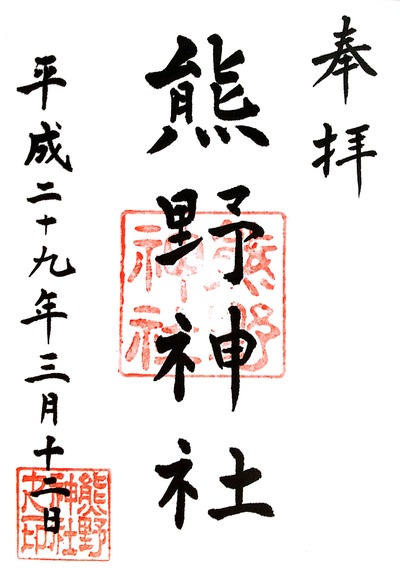 奉拝
熊野神社
熊野
神社
平成二十九年三月十二日
熊野
神社
之印